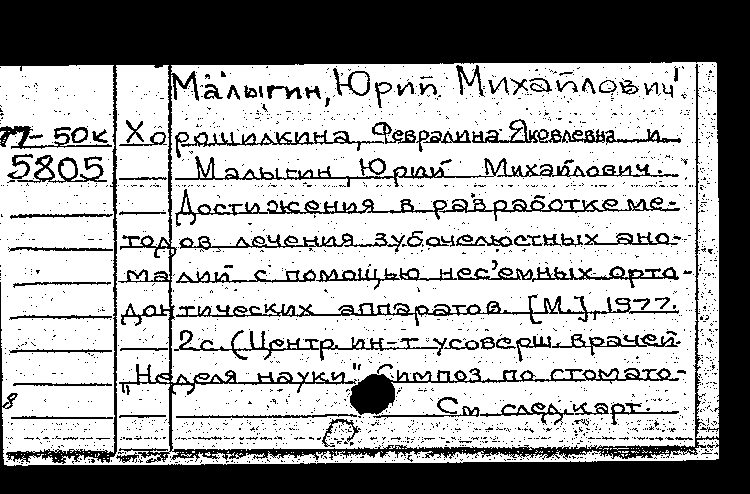 Малыгин, Юрий Михайлович
77-50к Хорошилкина, Февралина Яковлевна и
5805 Малыгин, Юрий Михайлович.
Достижения в разработке ме-
тодов лечения зубочелюстных ано-
малий с помощью нес'емных орто-
донтических аппаратов. [М.], 1977.
2с. (Центр. ин-т усоверш. врачей.
„Неделя науки". Симпоз. по стомато-
8
См. след. карт.